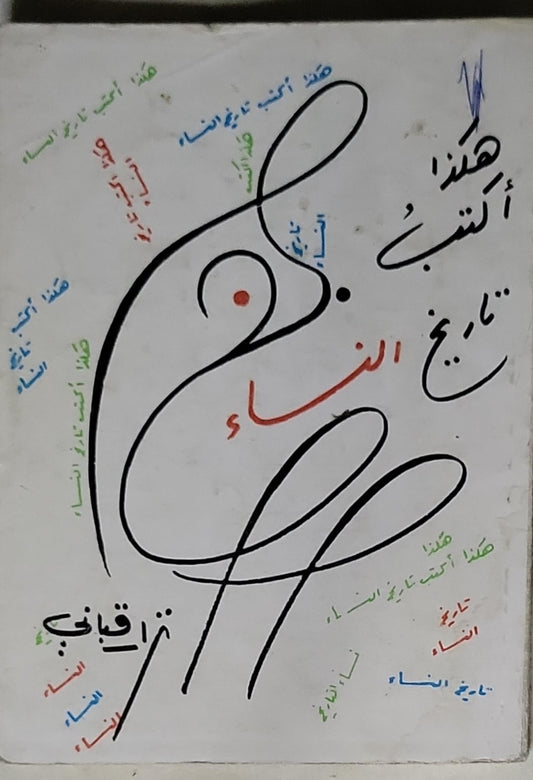 هكذا
أكتبُ
تاريخ
النساء
نزار قباني
هكذا أكتب تاريخ النساء
هكذا أكتب تاريخ النساء
هكذا أكتب تاريخ
النساء
هكذا أكتب
تاريخ
النساء
هكذا أكتب
تاريخ
النساء
هكذا أكتب تاريخ النساء
هكذا
هكذا أكتب تاريخ النساء
تاريخ
النساء
تاريخ النساء
النساء
النساء
النساء